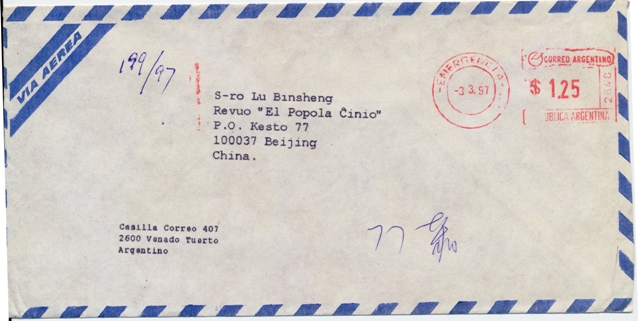 VIA AEREA
199/97
EMERGENCIA
-3.3.97
CORREO ARGENTINO
$ 1.25
264C
BLICA ARGENTINA
S-ro Lu Binsheng
Revuo "El Popola Ĉinio"
P.O. Kesto 77
100037 Beijing
China.
Casilla Correo 407
2600 Venado Tuerto
Argentino
77